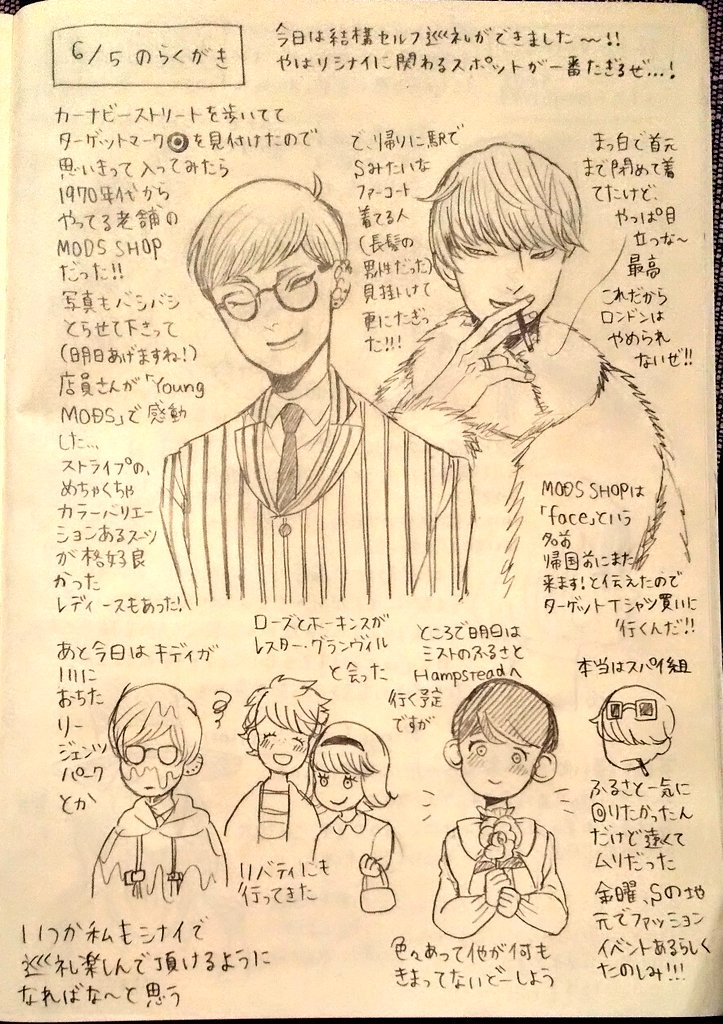 6/5のらくがき
今日は結構セルフ巡礼ができました〜!!
やはりシナイに関わるスポットが一番たぎるぜ…!
カーナビーストリートを歩いてて
ターゲットマーク◎を見付けたので
思いきって入ってみたら
1970年代から
やってる老舗の
MODS SHOP
だった!!
写真もバシバシ
とらせて下さって
(明日あげますね!)
店員さんが「Young
MODS」で感動
した…
ストライプの、
めちゃくちゃ
カラーバリエー
ションあるスーツ
が格好良
かった
レディースもあった!
で、帰りに駅で
Sみたいな
ファーコート
着てる人
(長髪の
男性だった)
見掛けて
更にたぎっ
た!!!
まっ白で首元
まで閉めて着
てたけど、
やっぱ目
立つな〜
最高
これだから
ロンドンは
やめられ
ないぜ!!
MODS SHOPは
「face」という
名前
帰国前にまた
来ます!と伝えたので
ターゲットTシャツ買いに
行くんだ!!
あと今日はキディが
川に
おちた
リー
ジェンツ
パーク
とか
ローズとホーキンスが
レスター・グランヴィル
と会った
リバティにも
行ってきた
ところで明日は
ミストのふるさと
Hampsteadへ
行く予定
ですが
色々あって他が何も
きまってないどーしよう
本当はスパイ組
ふるさと一気に
回りたかったん
だけど遠くて
ムリだった
金曜、Sの地
元でファッション
イベントあるらしく
たのしみ!!!
いつか私もシナイで
巡礼楽しんで頂けるように
なればな〜と思う